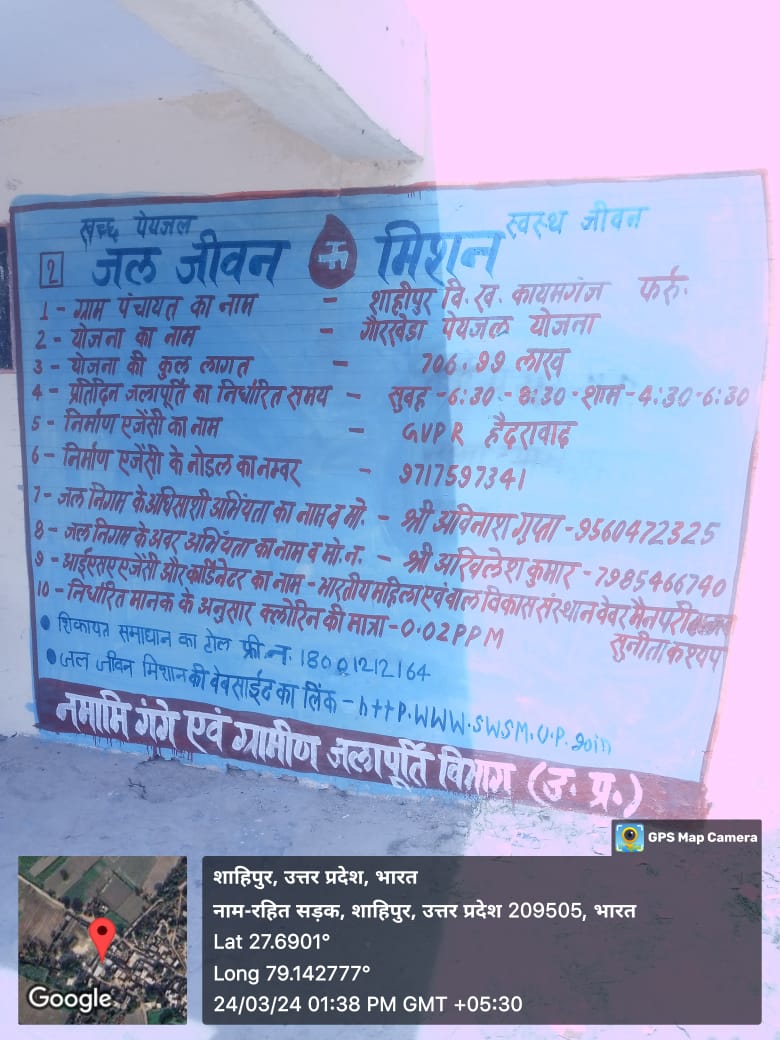 स्वच्छ पेयजल स्वस्थ जीवन
2 जल जीवन मिशन
1 - ग्राम पंचायत का नाम - शाहीपुर वि. ख. कायमगंज फर्रु.
2 - योजना का नाम - गौरखेडा पेयजल योजना
3 - योजना की कुल लागत - 706.99 लाख
4 - प्रतिदिन जलापूर्ति का निर्धारित समय - सुवह -6:30 - 8:30 - शाम - 4:30 -6:30
5 - निर्माण एजेंसी का नाम - GVPR हैदरावाद
6 - निर्माण एजेंसी के नोडल का नम्वर - 9717597341
7 - जल निगम के अधिसाशी अभियंता का नाम व मो. - श्री अविनाश गुप्ता - 9560472325
8 - जल निगम के अवर अभियंता का नाम व मो. न. - श्री अखिलेश कुमार - 7985466740
9 - आईएसए एजेंसी और कोर्डिनेटर का नाम - भारतीय महिला एवं वाल विकास संस्थान वेवर मैनपरी
सुनीता कश्यप
10 - निर्धारित मानक के अनुसार क्लोरिन की मात्रा - 0.02 PPM
• शिकायत समाधान का टोल फ्री. न. 18001212164
• जल जीवन मिशान की वेबसाईट का लिंक - http.WWW.SWSM.U.P.goin
नमामि गंगे एवं ग्रामीण जलापूर्ति विभाग (उ. प्र.)
GPS Map Camera
शाहिपुर, उत्तर प्रदेश, भारत
नाम-रहित सड़क, शाहिपुर, उत्तर प्रदेश 209505, भारत
Lat 27.6901°
Long 79.142777°
24/03/24 01:38 PM GMT +05:30
Google